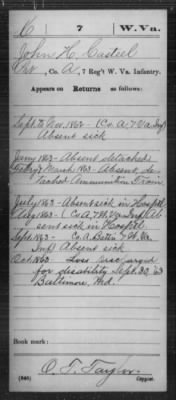 C 7 W.Va.
John H. Casteel
Pvt, Co. A, 7 Reg't W. Va. Infantry.
Appears on Returns as follows:
Sept. to Nov. 1862 - (Co. A, 7 Va Inf)
Absent sick
Jany 1863 - Absent detached
Feby & March 1863 - Absent, de-
tached Ammunition Train
July 1863 - Absent sick in Hospital
Aug 1863 - (Co. A, 7 W. Va Inf) Ab-
sent sick in Hospital
Sept. 1863 - Co. A Batt'n 7 W. Va.
Inf) Absent sick
Oct. 1863 Loss discharged
for disability Sept. 30, '63
Baltimore, Md.
Book mark:
O. F. Taylor
(546) Copyist.